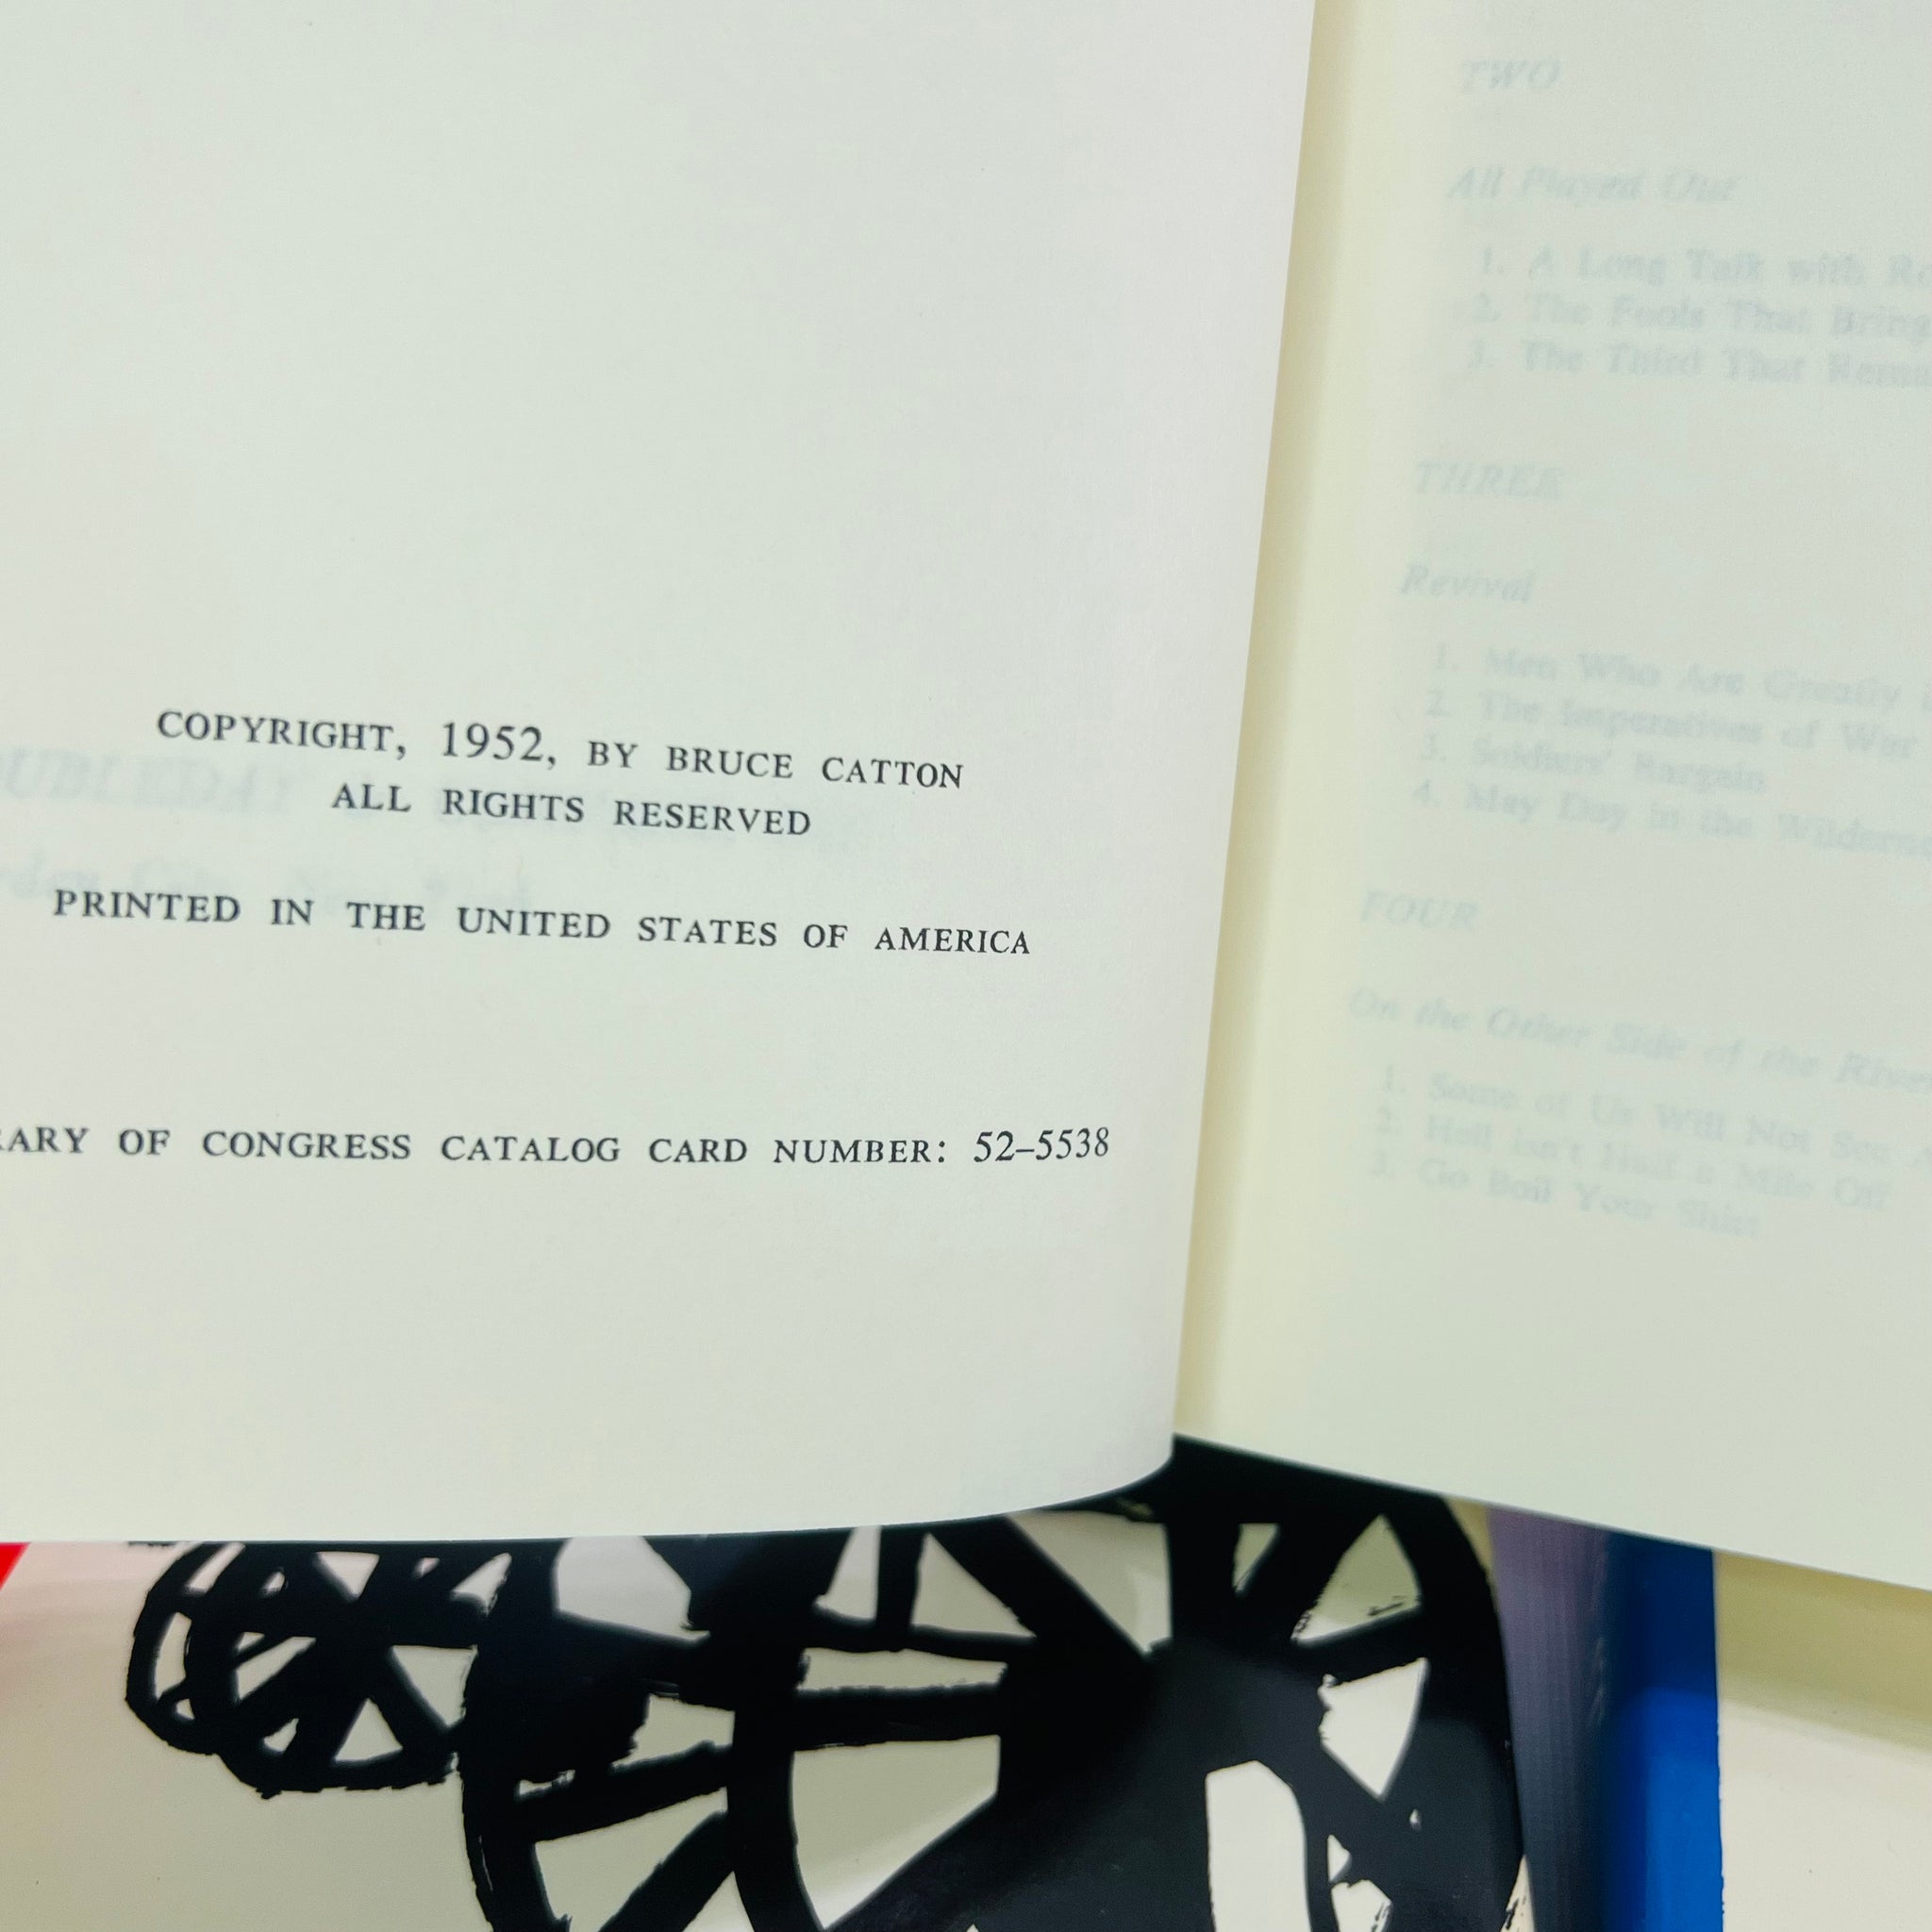 COPYRIGHT, 1952, BY BRUCE CATTON
ALL RIGHTS RESERVED
PRINTED IN THE UNITED STATES OF AMERICA
RARY OF CONGRESS CATALOG CARD NUMBER: 52–5538
TWO
All Played Out
1. A Long Talk with
2. The Fools That Bring
3. The Third That
THREE
Revival
1. Men Who Are Greatly
2. The Imperatives of War
3. Soldiers' Bargain
4. May Day in the
FOUR
On the Other Side of the River
1. Some of Us Will Not See
2. Hell Isn't Half a Mile Off
3. Go Boil Your Shirt